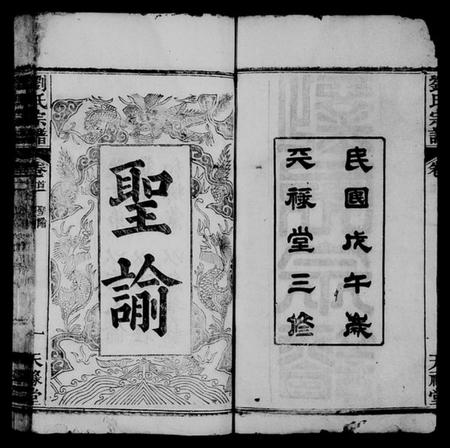 民國戊午歲
天祿堂三修
聖諭
劉氏宗譜
卷首
一 天祿堂
劉氏宗譜
卷
天祿堂